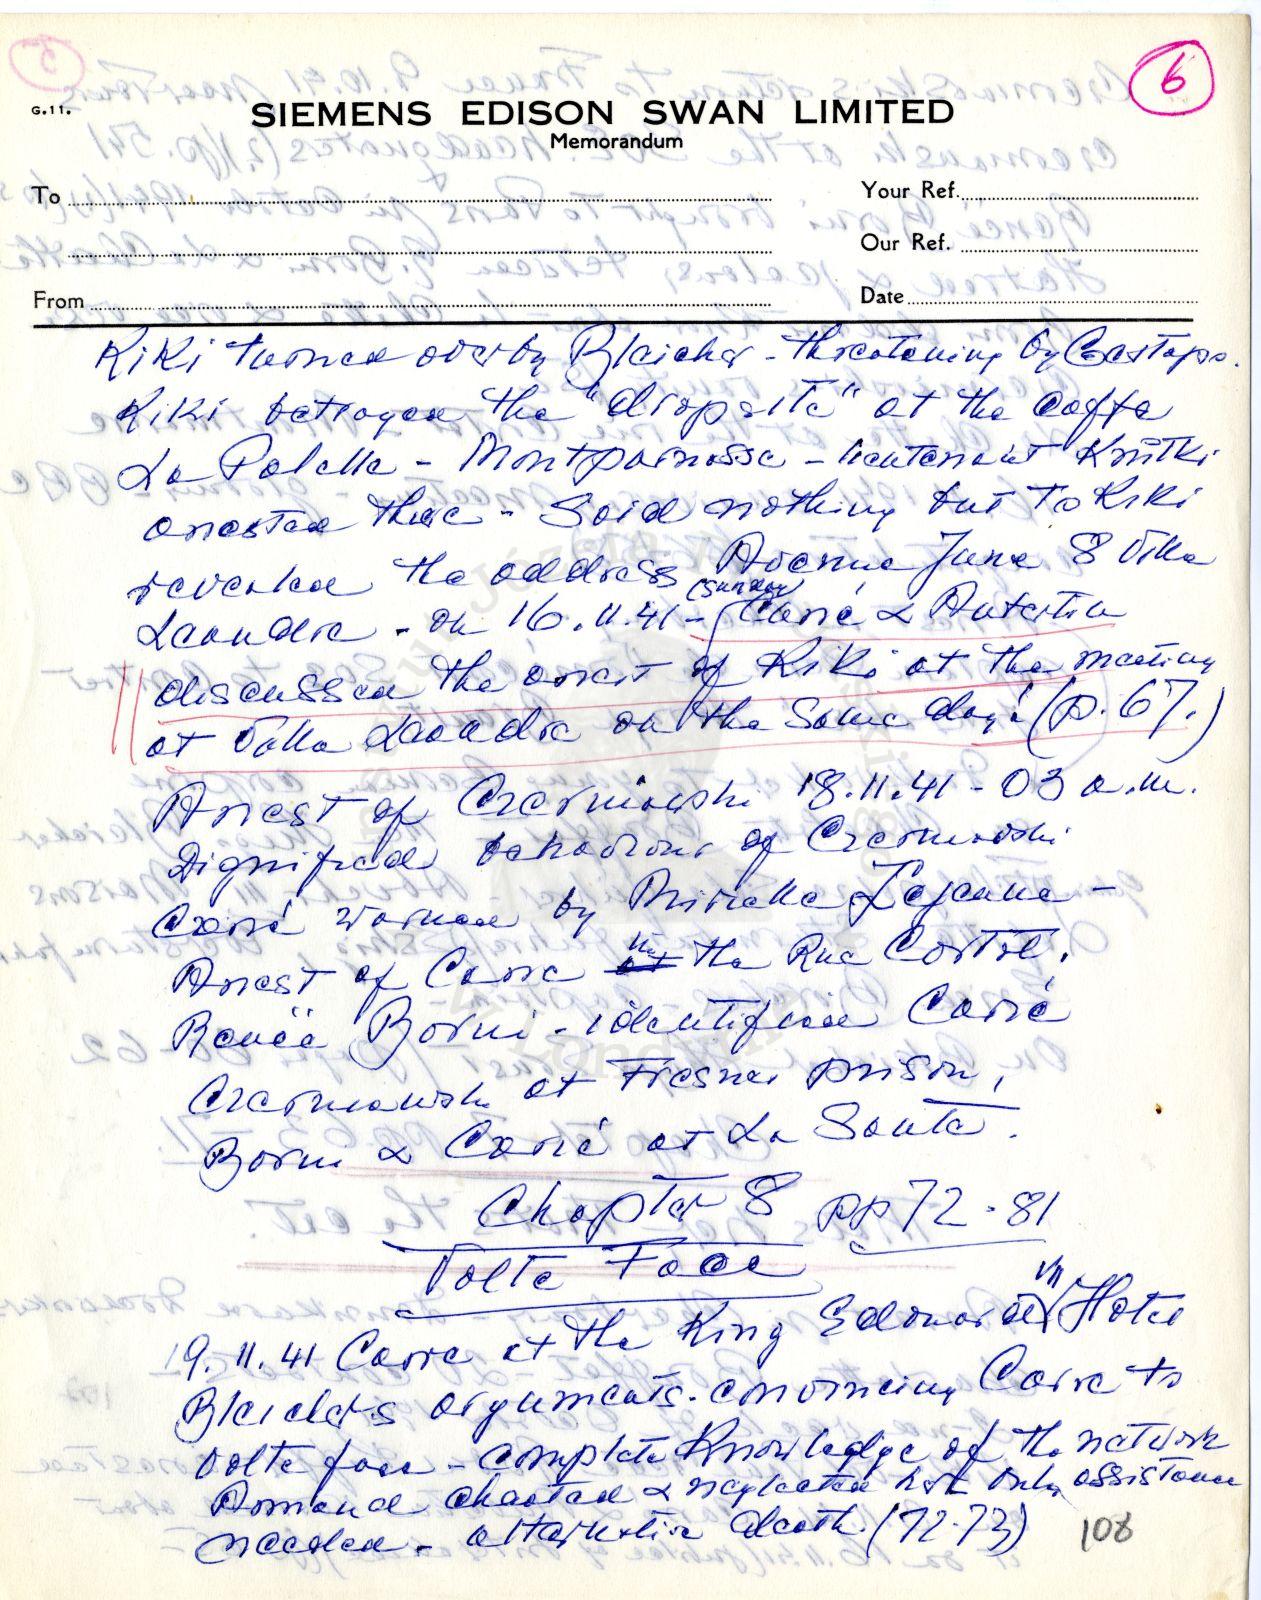 6
G.11.
SIEMENS EDISON SWAN LIMITED
Memorandum
To
Your Ref.
Our Ref.
From
Date
Kiki turned over by Bleicher - threatening by Gestapo.
Kiki betrayed the "dropsite" at the caffe
La Palette - Montparnasse - lieutenant Krütki
arrested there - Said nothing but to Kiki
revealed the address Avenue Junot 8 Villa
Leandre - on 16.11.41 - (sunday) Carré & Autertin
discussed the arrest of Kiki at the meeting
at Villa Leandre on the same day! (p. 67.)
Arrest of Czerniawski 18.11.41 - 03 a.m.
Dignified behaviour of Czerniawski
Carré warned by Mireille Lejeune -
Arrest of Carré in the Rue Cortot.
Renée Borni - identified Carré
Czerniawski at Fresnes prison,
Borni & Carré at La Santé.
Chapter 8 pp 72-81
Volte Face
19.11.41 Carré at the King Edouard VII Hotel
Bleicher's arguments - convincing Carré to
volte face - complete knowledge of the network
Armand cheated & neglected her only assistance
needed - alternative death. (72-73)
108